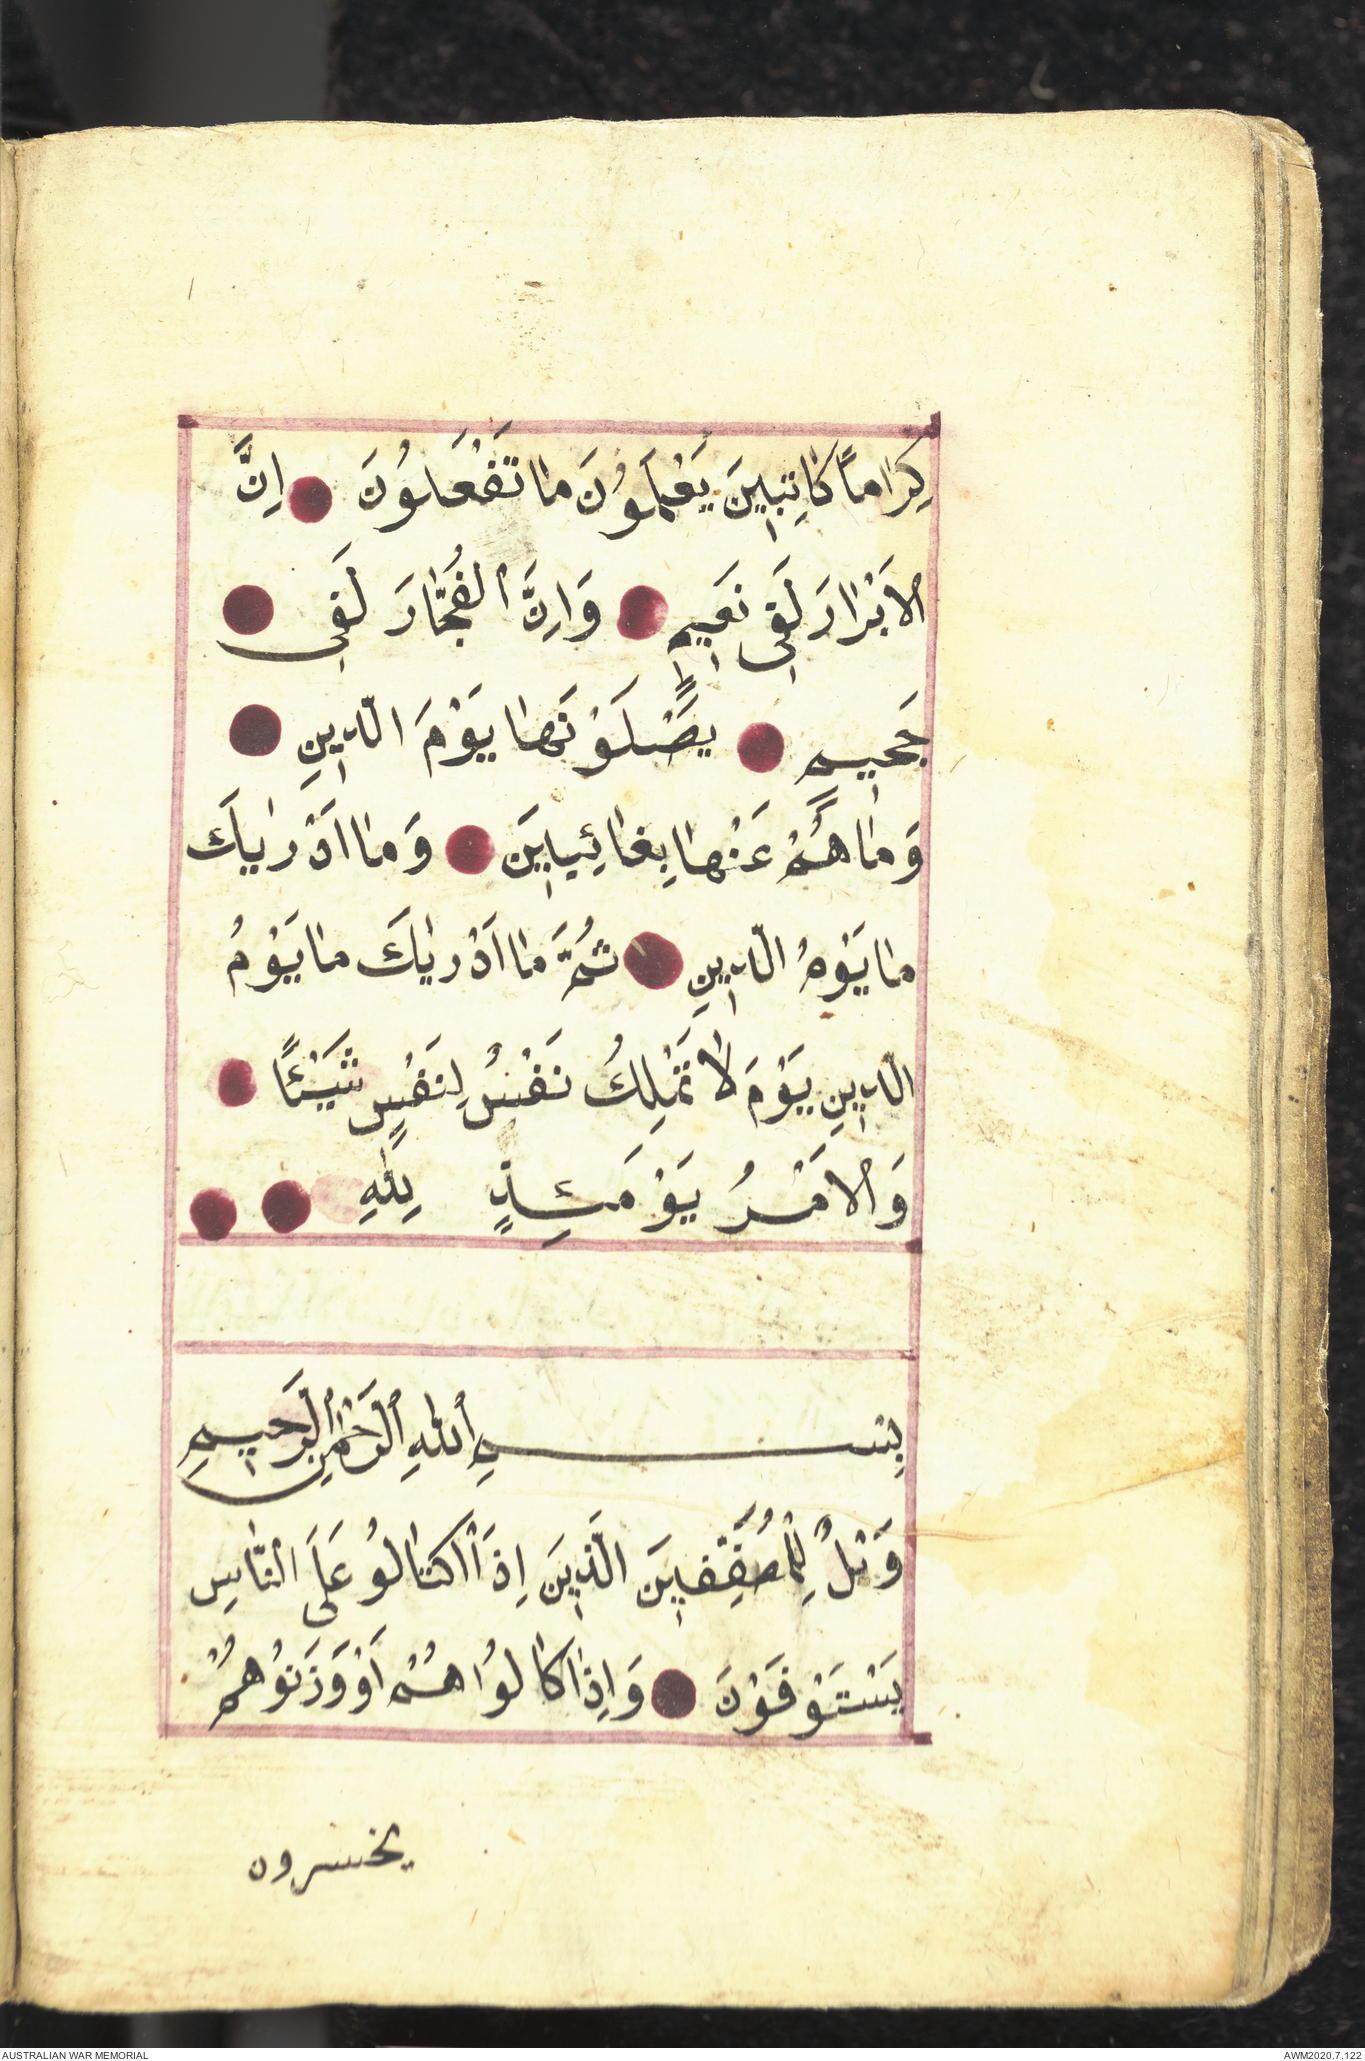 كِرَامًا كَاتِبِينَ يَعْلَمُونَ مَا تَفْعَلُونَ اِنَّ
الاَبْرَارَ لَفِى نَعِيمٍ وَاِنَّ الفُجَّارَ لَفِى
جَحِيمٍ يَصْلَوْنَهَا يَوْمَ الدِّينِ
وَمَا هُمْ عَنْهَا بِغَائِبِينَ وَمَا اَدْرٰيكَ
مَا يَوْمُ الدِّينِ ثُمَّ مَا اَدْرٰيكَ مَا يَوْمُ
الدِّينِ يَوْمَ لاَ تَمْلِكُ نَفْسٌ لِنَفْسٍ شَيْئًا
وَالاَمْرُ يَوْمَئِذٍ لِلّٰهِ
بِسْمِ اللّٰهِ الرَّحْمٰنِ الرَّحِيمِ
وَيْلٌ لِلْمُطَفِّفِينَ الَّذِينَ اِذَا اكْتَالُو عَلَى النَّاسِ
يَسْتَوْفَوْنَ وَاِذَا كَالُوا هُمْ اَوْ وَزَنُوهُمْ
يخسرون
AUSTRALIAN WAR MEMORIAL
AWM2020.7.122